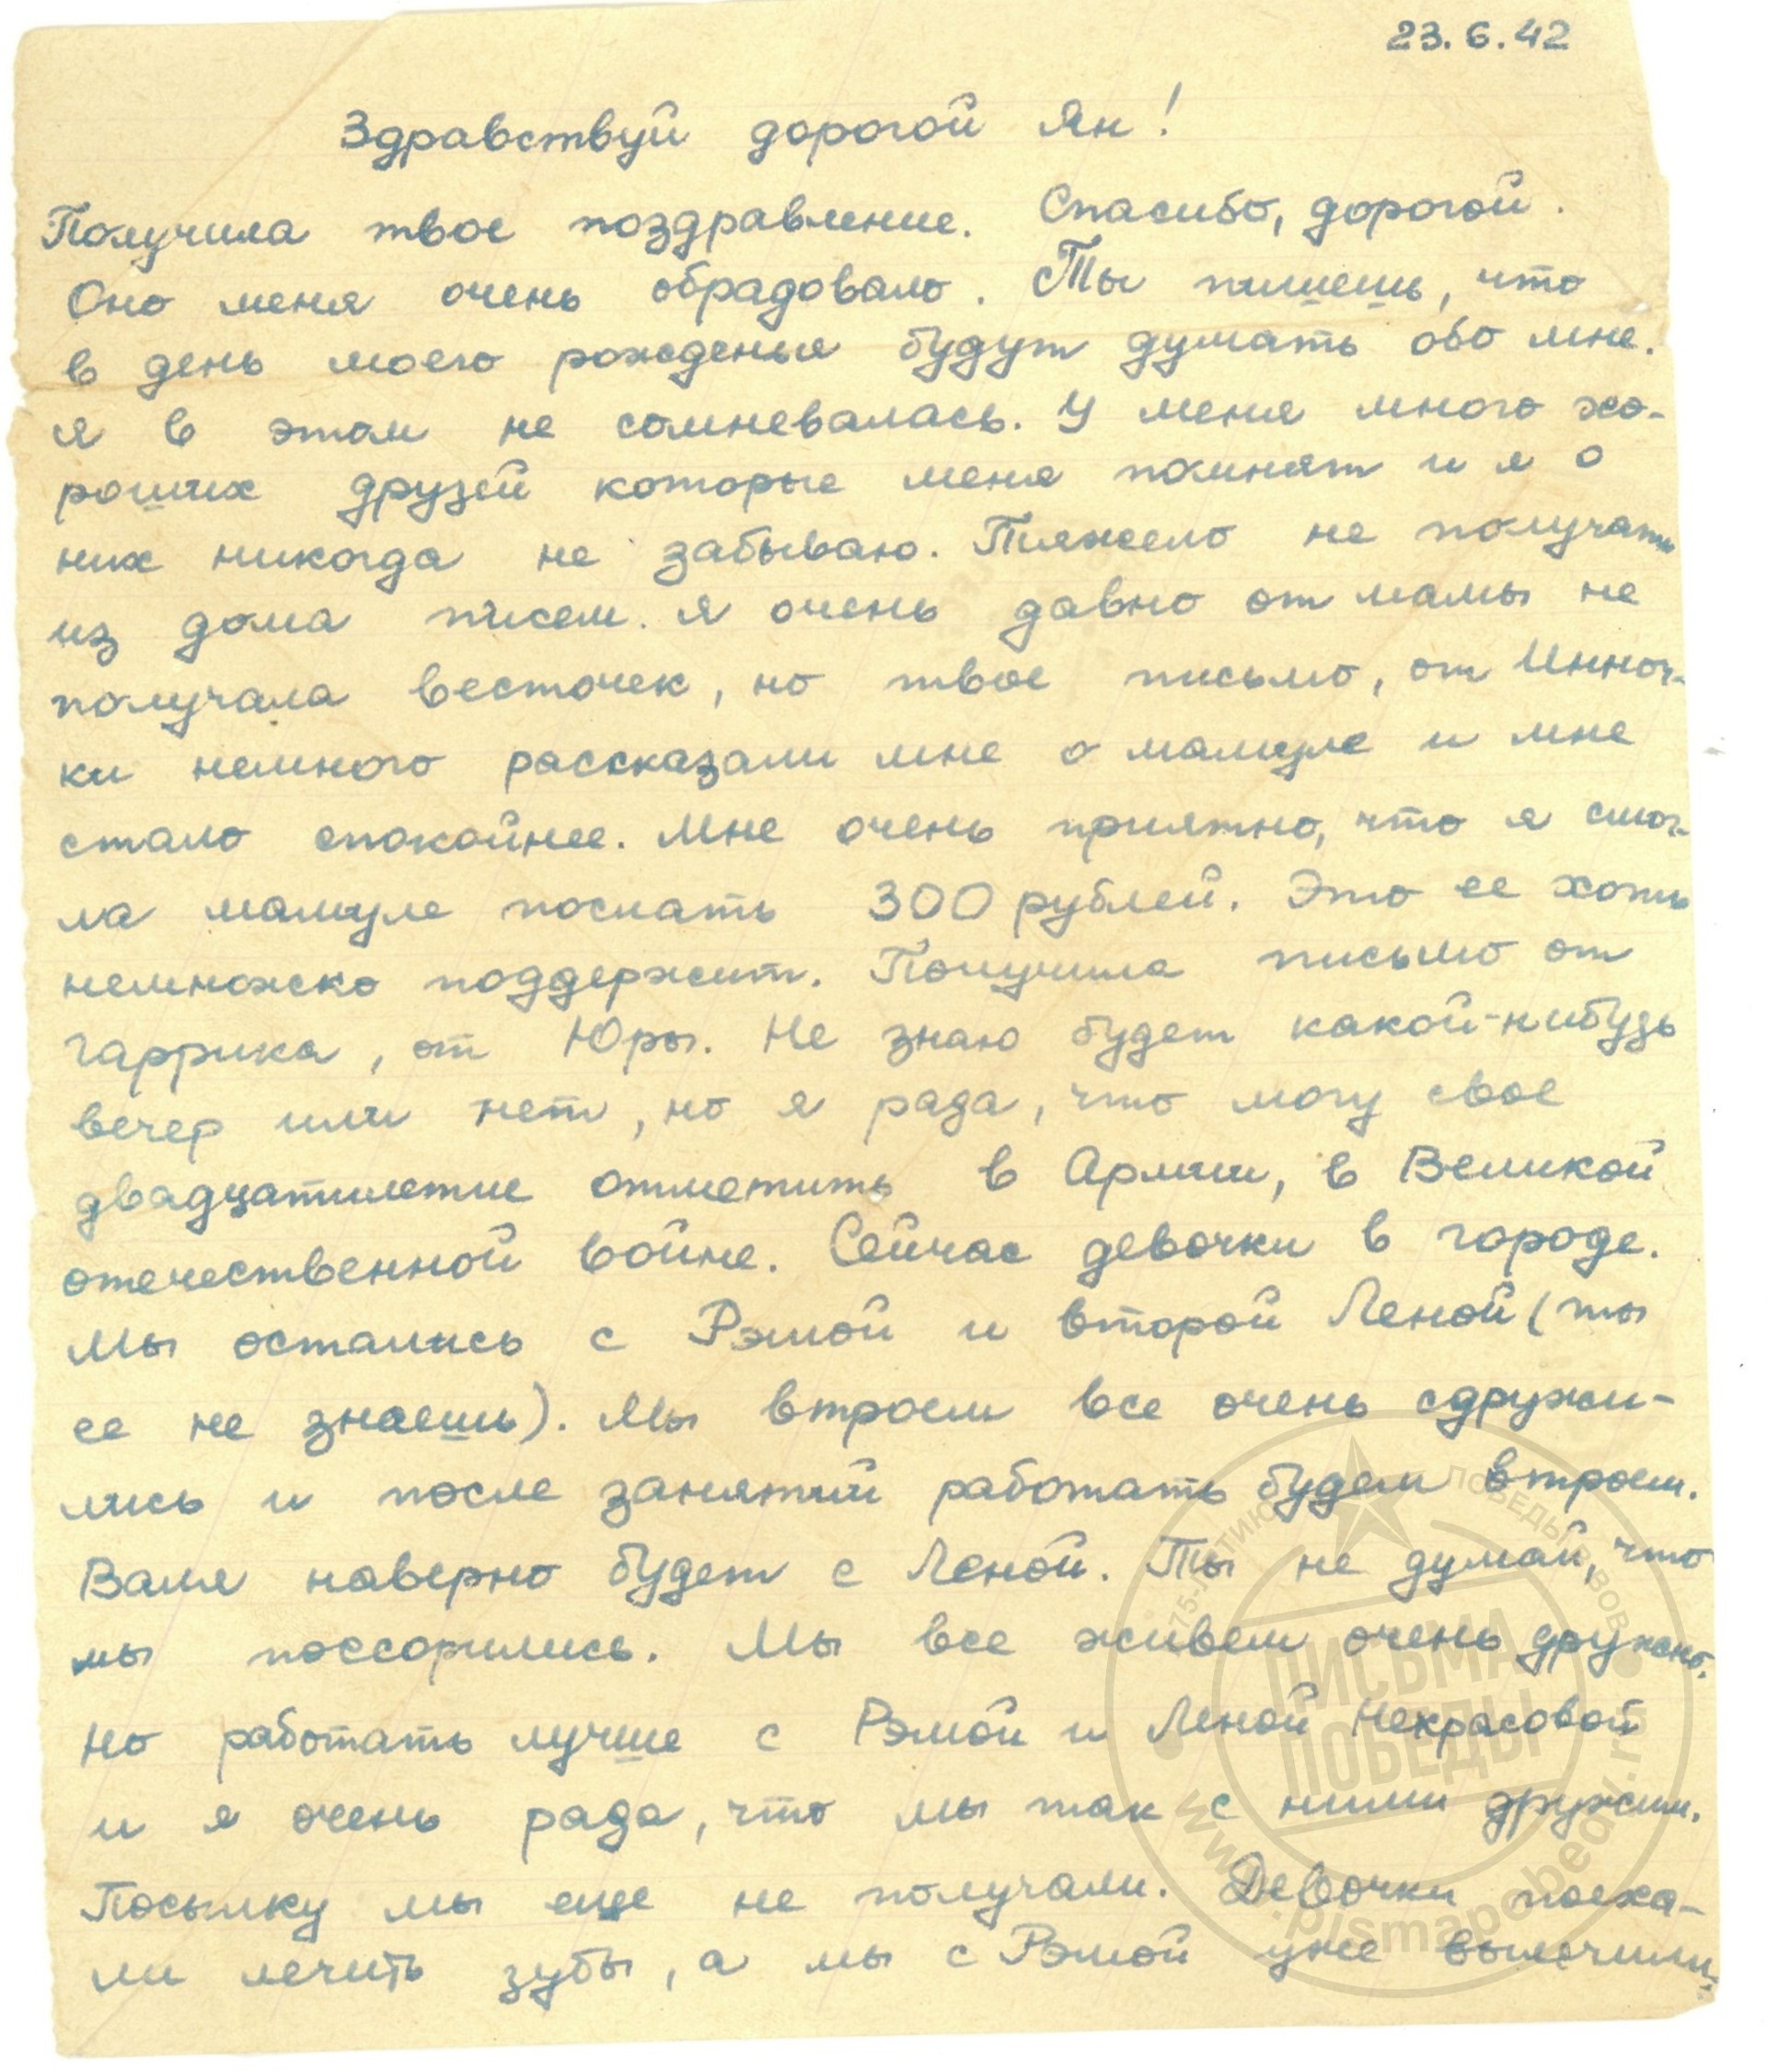 23.6.42
Здравствуй дорогой Ян!
Получила твое поздравление. Спасибо, дорогой.
Оно меня очень обрадовало. Ты пишешь, что
в день моего рожденья будут думать обо мне.
Я в этом не сомневалась. У меня много хо-
роших друзей которые меня помнят и я о
них никогда не забываю. Тяжело не получать
из дома писем. Я очень давно от мамы не
получала весточек, но твое письмо, от Инноч-
ки немного рассказали мне о мамуле и мне
стало спокойнее. Мне очень приятно, что я смог-
ла мамуле послать 300 рублей. Это ее хоть
немножко поддержит. Получила письмо от
Гаррика, от Юры. Не знаю будет какой-нибудь
вечер или нет, но я рада, что могу свое
двадцатилетие отметить в Армии, в Великой
отечественной войне. Сейчас девочки в городе.
Мы остались с Рэмой и второй Леной (ты
ее не знаешь). Мы втроем все очень сдружи-
лись и после занятий работать будем втроем.
Валя наверно будет с Леной. Ты не думай, что
мы поссорились. Мы все живем очень дружно.
Но работать лучше с Рэмой и Леной Некрасовой
и я очень рада, что мы так с ними дружим.
Посылку мы еще не получали. Девочки поеха-
ли лечить зубы, а мы с Рэмой уже вылечили.
ПИСЬМА
ПОБЕДЫ
www.pismapobedy.ru